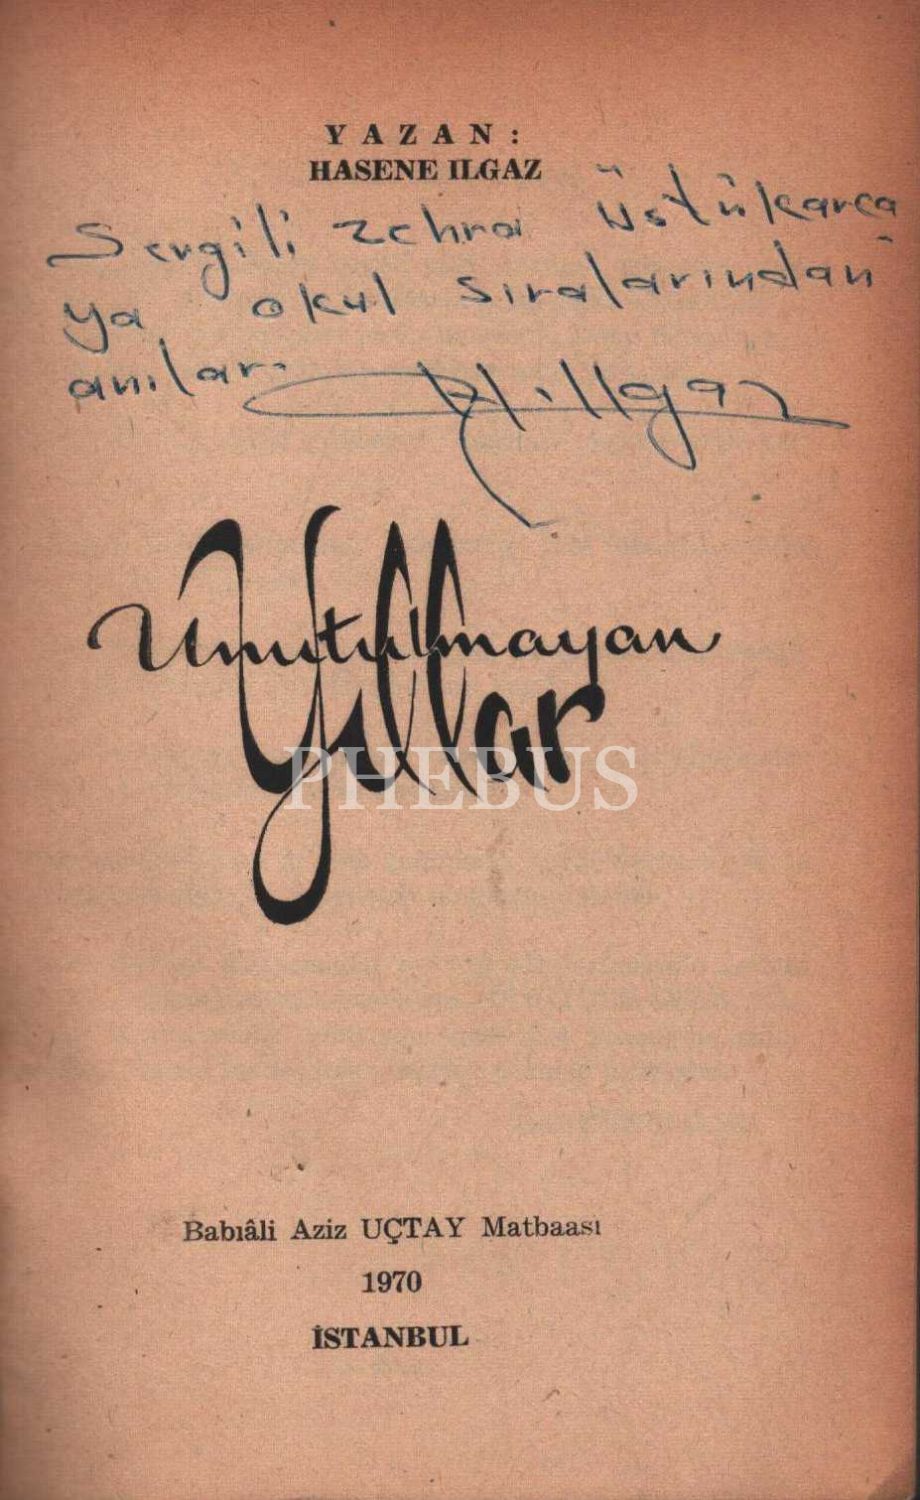 YAZAN:
HASENE ILGAZ
Sevgili Zehra Üstükarca
ya okul sıralarından
anılar.
H. Ilgaz
Unutulmayan
Yıllar
PHEBUS
Babıâli Aziz UÇTAY Matbaası
1970
İSTANBUL